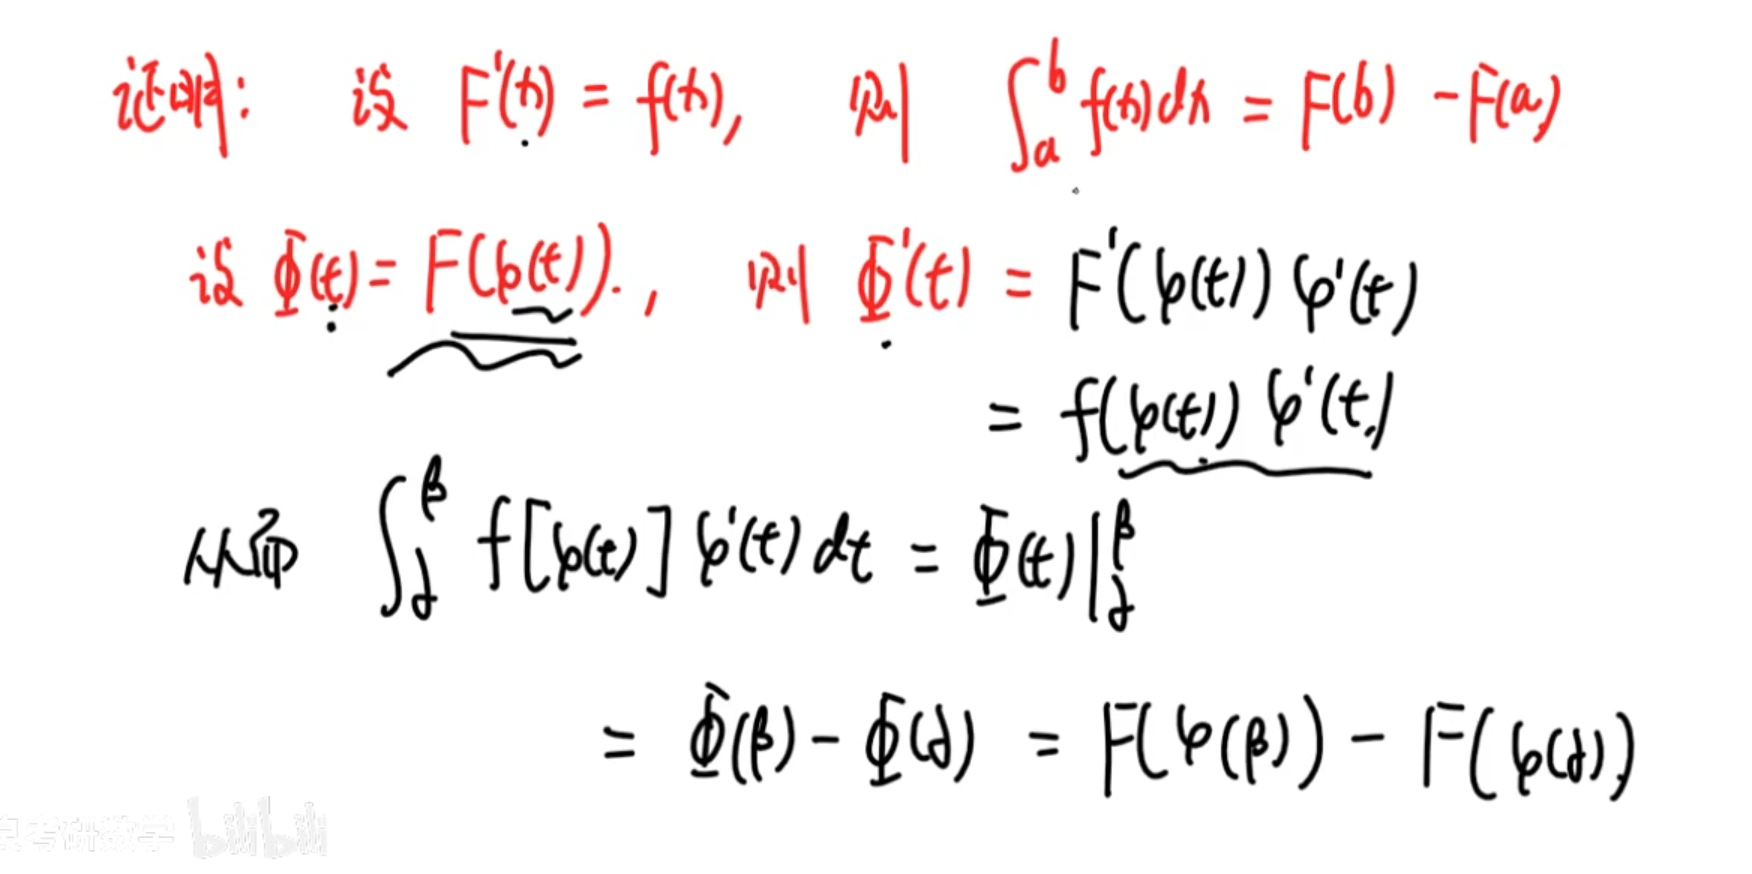 证明: 设 F'(x) = f(x), 则 ∫_a^b f(x)dx = F(b) - F(a)
设 Φ(t) = F(φ(t))., 则 Φ'(t) = F'(φ(t)) φ'(t)
= f(φ(t)) φ'(t)
从而 ∫_α^β f[φ(t)] φ'(t) dt = Φ(t)|_α^β
= Φ(β) - Φ(α) = F(φ(β)) - F(φ(α))
考研数学 bilibili